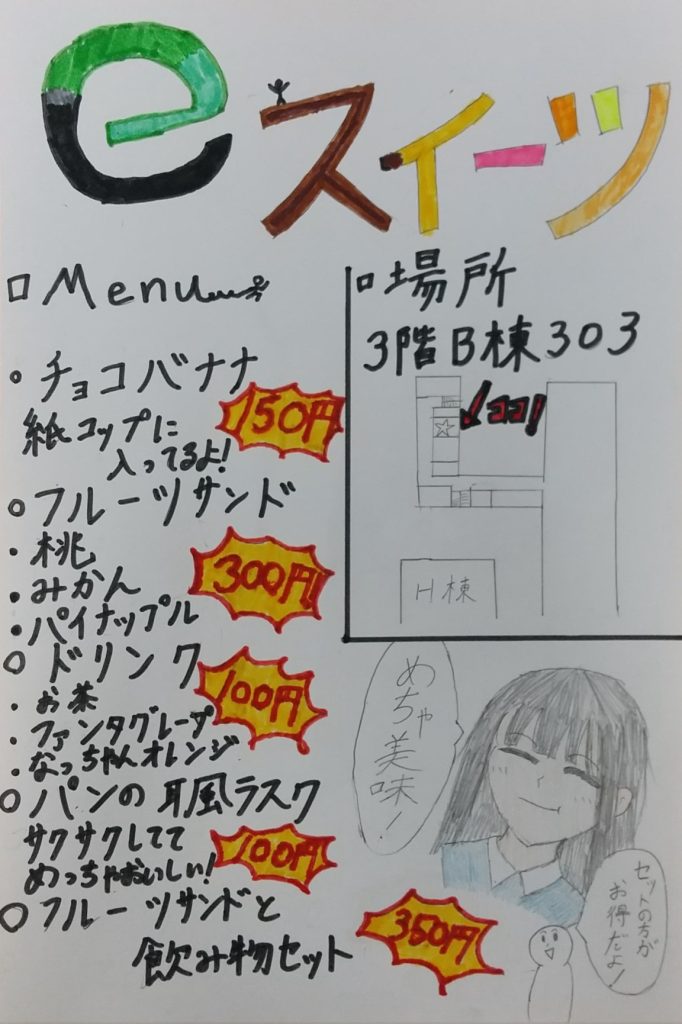 eスイーツ
□Menu
・チョコバナナ
150円
紙コップに
入ってるよ!
○フルーツサンド
・桃
・みかん
・パイナップル
300円
○ドリンク
・お茶
・ファンタグレープ
・なっちゃんオレンジ
100円
○パンの耳風ラスク
サクサクしてて
めっちゃおいしい!
100円
○フルーツサンドと
飲み物セット
350円
□場所
3階B棟303
ココ!
H棟
めちゃ
美味!
セットの方が
お得だよ!